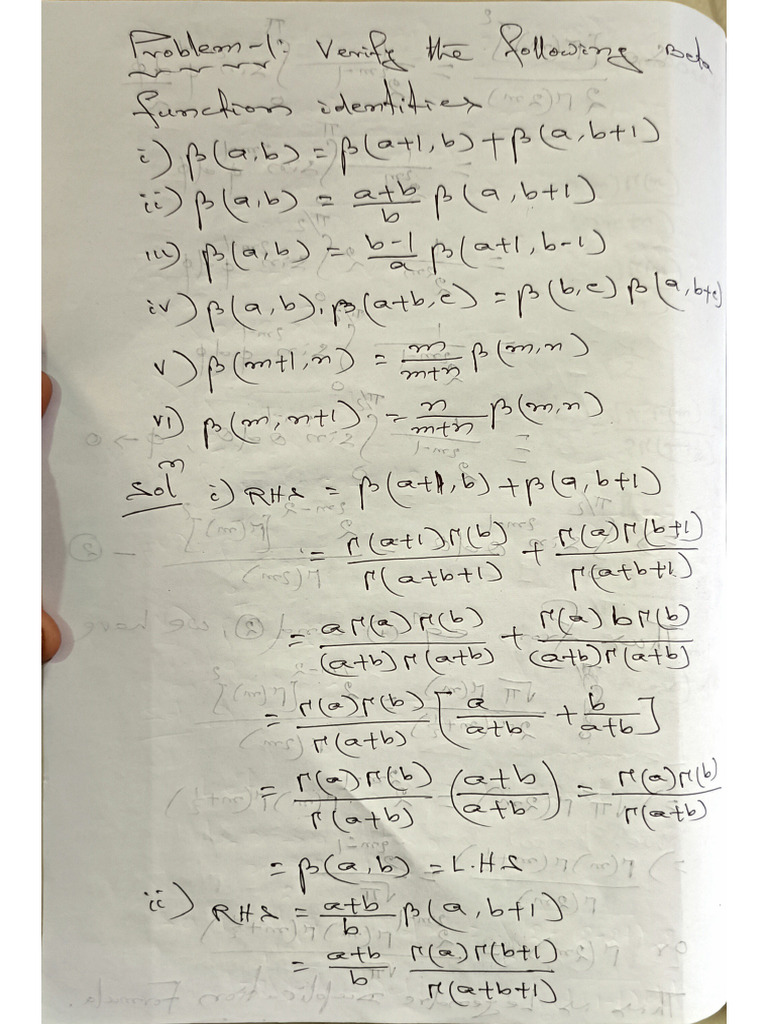 Problem-1: Verify the following Beta
function identities
i) β(a,b) = β(a+1, b) + β(a, b+1)
ii) β(a,b) = a+b/b β(a, b+1)
iii) β(a,b) = b-1/a β(a+1, b-1)
iv) β(a,b). β(a+b, c) = β(b,c) β(a, b+c)
v) β(m+1, n) = m/m+n β(m,n)
vi) β(m, n+1) = n/m+n β(m,n)
Solⁿ i) RHS = β(a+1, b) + β(a, b+1)
= Γ(a+1)Γ(b)/Γ(a+b+1) + Γ(a)Γ(b+1)/Γ(a+b+1)
= aΓ(a)Γ(b)/(a+b)Γ(a+b) + Γ(a)bΓ(b)/(a+b)Γ(a+b)
= Γ(a)Γ(b)/Γ(a+b) [a/a+b + b/a+b]
= Γ(a)Γ(b)/Γ(a+b) (a+b/a+b) = Γ(a)Γ(b)/Γ(a+b)
= β(a,b) = L.H.S
ii) RHS = a+b/b β(a, b+1)
= a+b/b Γ(a)Γ(b+1)/Γ(a+b+1)